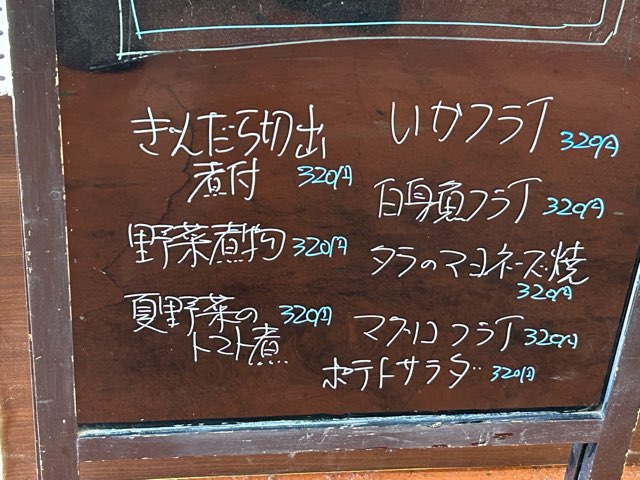 きんだら切出
煮付 320円
野菜煮物 320円
夏野菜の 320円
トマト煮
いかフライ 320円
白身魚フライ 320円
タラのマヨネーズ焼
320円
マグロフライ 320円
ポテトサラダ 320円